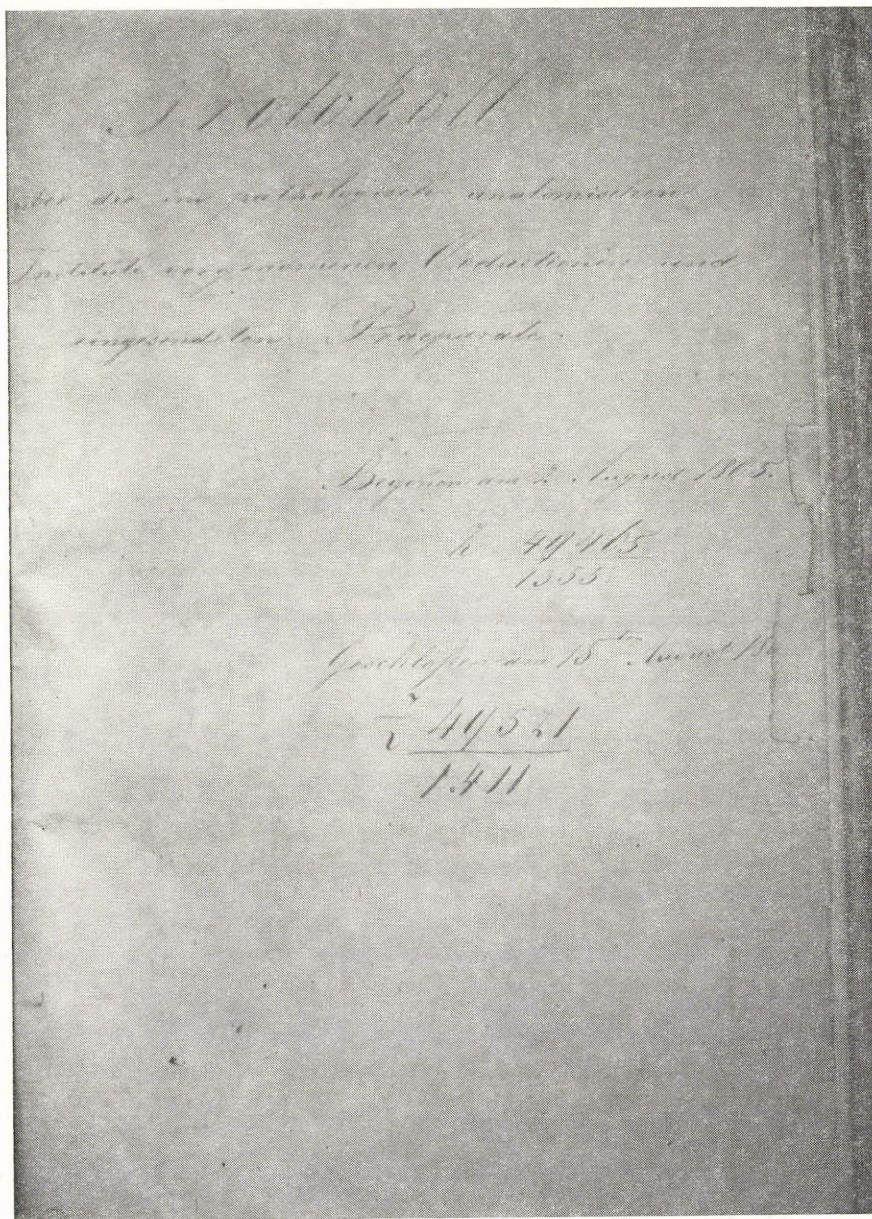 Protokoll
über die im pathologisch-anatomischen
Institute vorgenommenen Obductionen und
eingesendeten Praeparate.
Begonnen am 2 August 1865.
49465
1355
Geschloßen am 15ten August 18
49521
1411